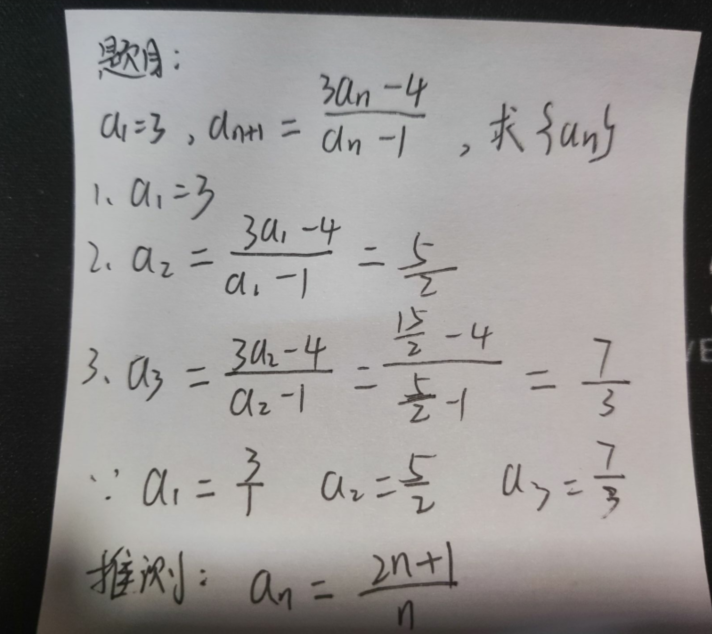 题目:
a₁=3, aₙ₊₁ = (3aₙ-4)/(aₙ-1), 求{aₙ}
1、a₁=3
2、a₂ = (3a₁-4)/(a₁-1) = 5/2
3、a₃ = (3a₂-4)/(a₂-1) = (15/2-4)/(5/2-1) = 7/3
∵ a₁ = 3/1 a₂ = 5/2 a₃ = 7/3
推测: aₙ = (2n+1)/n